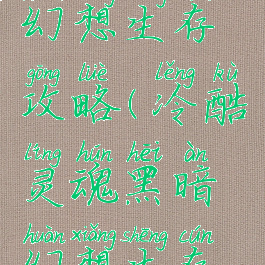 幻想生存
gōng lüè lěng kù
攻略(冷酷
líng hún hēi àn
灵魂黑暗
huàn xiǎng shēng cún
幻想生存